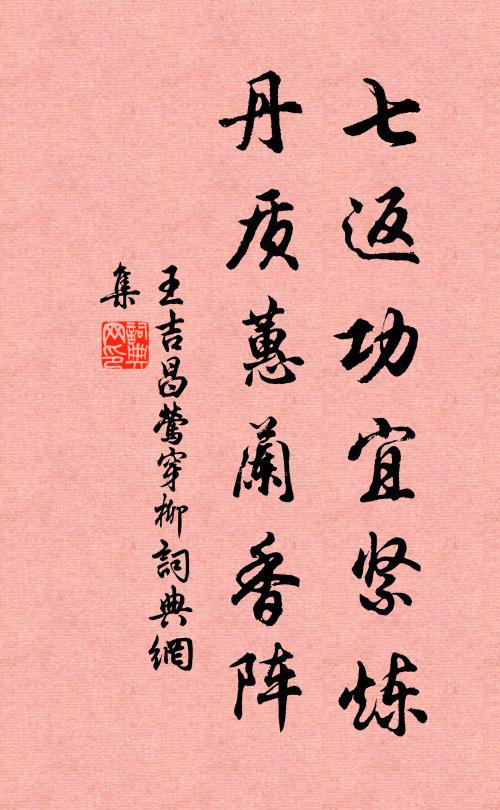 七返功宜紧炼
丹质蕙兰香阵
王吉昌莺穿柳詞典網
集
詞典
网印